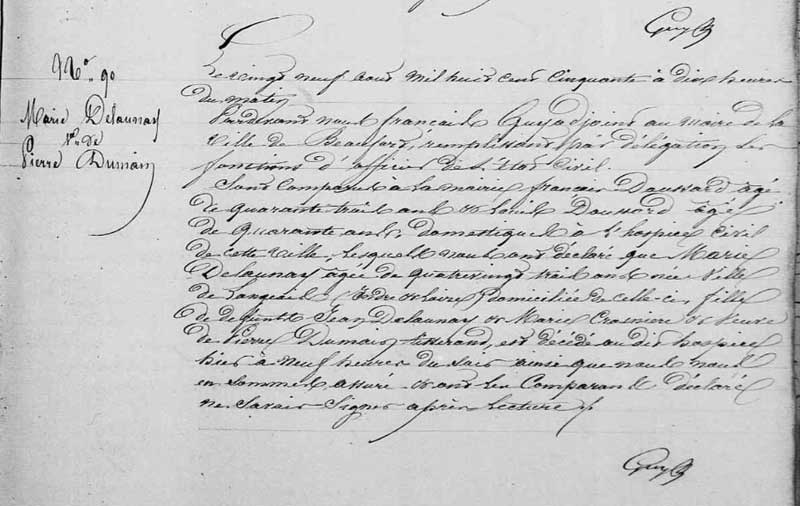 Guy
No. 90
Marie Delaunay
Ve. de
Pierre Dumain
Le vingt neuf aout mil huit cent cinquante à dix heures
du matin
Pardevant nous françois Guy adjoint au maire de la
ville de Beaufort, remplissant par délégation les
fonctions d'officier de l'Etat Civil.
Sont Comparus à la mairie françois Doussard agé
de quarante trois ans et Louis Doussard agé
de quarante ans, domestiques à l'hospice Civil
de cette ville, lesquels nous ont déclaré que Marie
Delaunay agée de quatrevingt trois ans née ville
de (Indre et Loire) domiciliée de celle-ci, fille
de defunts Jean Delaunay et Marie et Veuve
de Pierre Dumain tisserand, est décédé audit hospice
hier à neuf heures du soir ainsi que nous nous
en sommes assuré et ont les Comparants déclaré
ne savoir signer après lecture
Guy